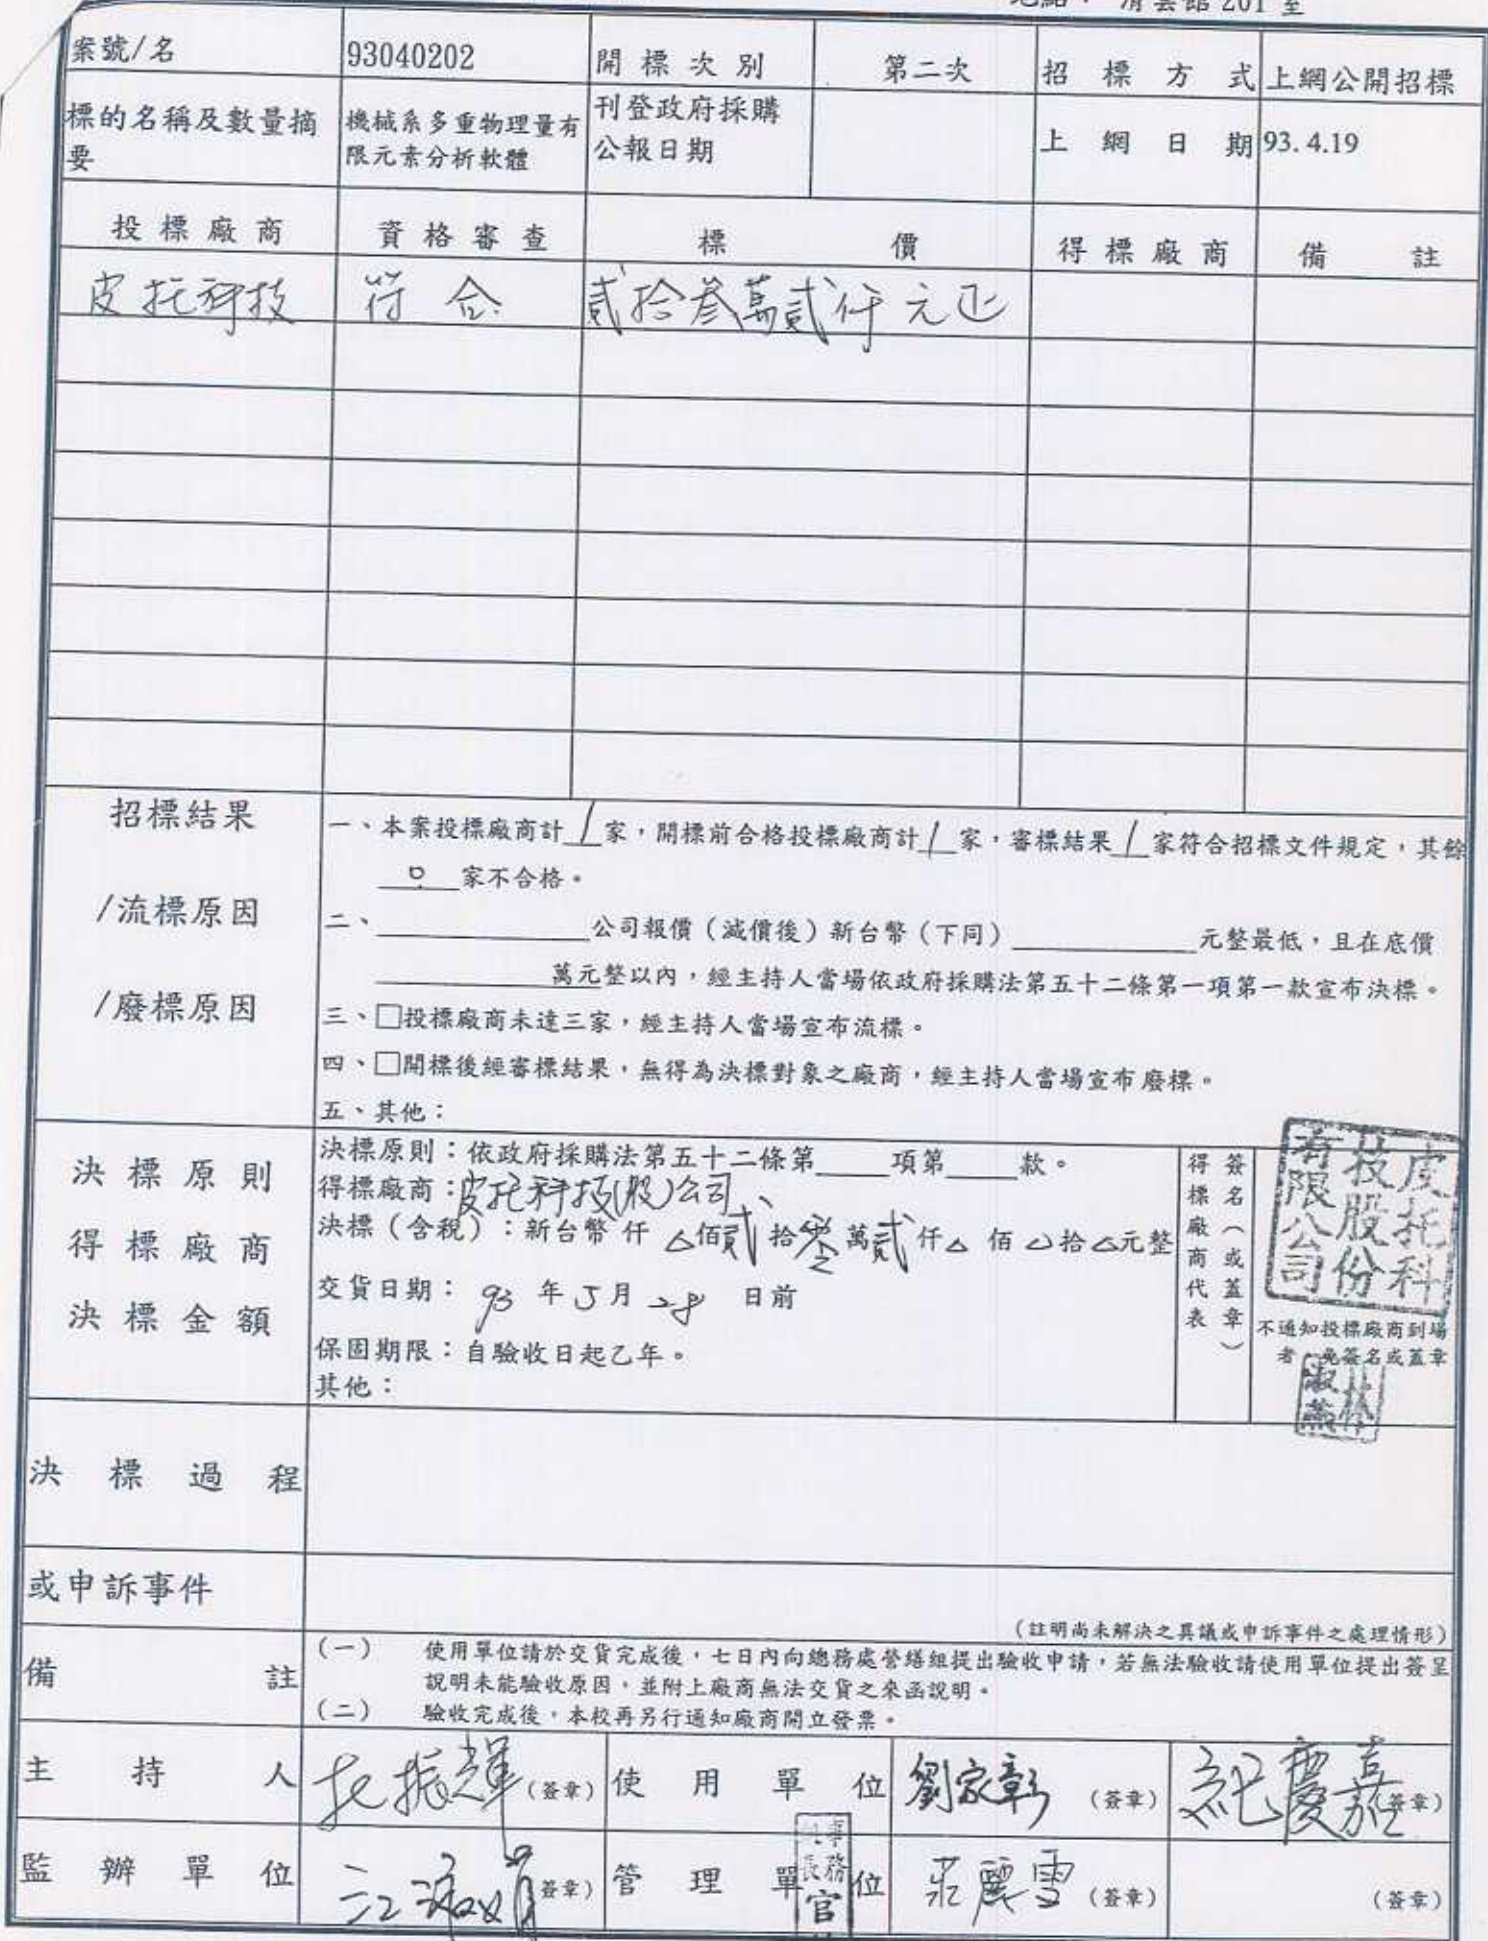 清雲館 201 室
案號/名 93040202 開標次別 第二次 招標方式 上網公開招標
標的名稱及數量摘要 機械系多重物理量有限元素分析軟體 刊登政府採購公報日期 上網日期 93.4.19
投標廠商 資格審查 標價 得標廠商 備註
皮托科技 符合 貳拾叁萬貳仟元正
招標結果
/流標原因
/廢標原因
一、本案投標廠商計 1 家,開標前合格投標廠商計 1 家,審標結果 1 家符合招標文件規定,其餘
0 家不合格。
二、____公司報價(減價後)新台幣(下同)____元整最低,且在底價
____萬元整以內,經主持人當場依政府採購法第五十二條第一項第一款宣布決標。
三、□投標廠商未達三家,經主持人當場宣布流標。
四、□開標後經審標結果,無得為決標對象之廠商,經主持人當場宣布廢標。
五、其他:
決標原則
得標廠商
決標金額
決標原則:依政府採購法第五十二條第____項第____款。
得標廠商:皮托科技(股)公司
決標(含稅):新台幣 仟 △佰貳拾 萬貳仟△佰△拾△元整
交貨日期: 93 年 5 月 28 日前
保固期限:自驗收日起乙年。
其他:
得標廠商代表
簽名(或蓋章)
皮托科技股份有限公司
不通知投標廠商到場
者 免簽名或蓋章
林淑燕
決標過程
或申訴事件
(註明尚未解決之異議或申訴事件之處理情形)
備註
(一) 使用單位請於交貨完成後,七日內向總務處營繕組提出驗收申請,若無法驗收請使用單位提出簽呈
說明未能驗收原因,並附上廠商無法交貨之來函說明。
(二) 驗收完成後,本校再另行通知廠商開立發票。
主持人 振輝 (簽章) 使用單位 劉家彰 (簽章) 紀慶嘉 (簽章)
監辦單位 江淑 (簽章) 管理單位 莊麗雪 (簽章) (簽章)
事務 長 官